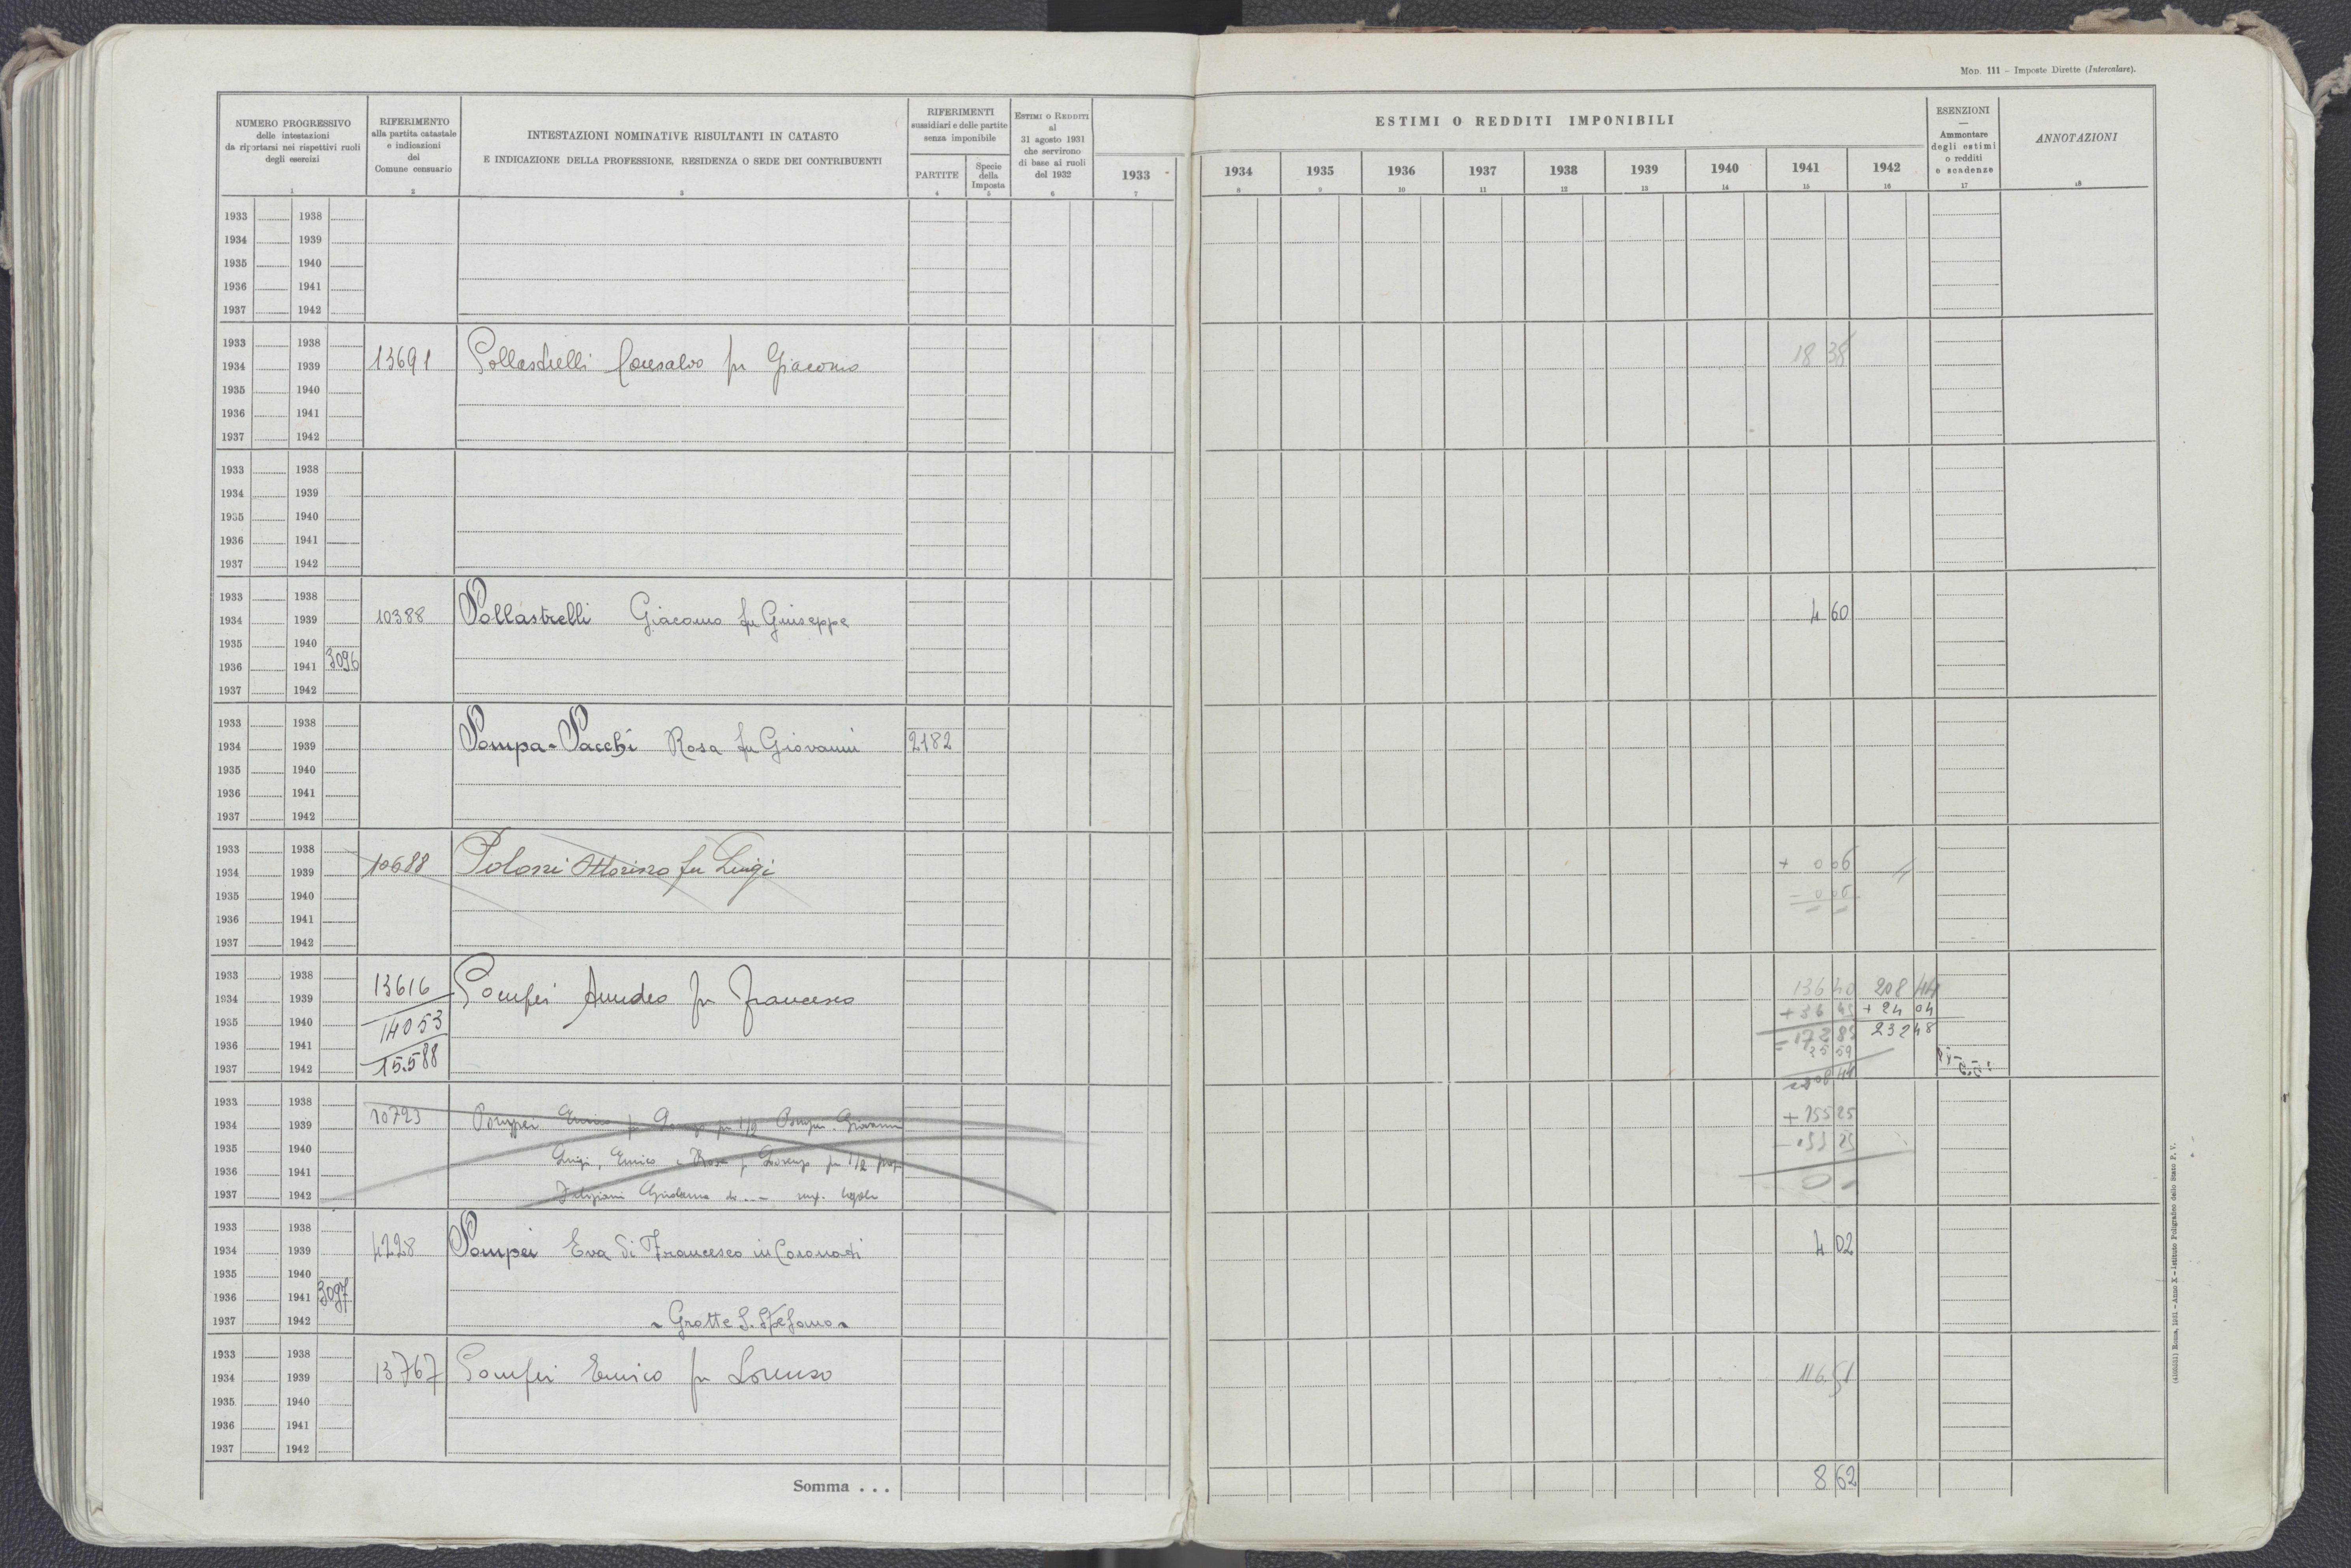 Mod. 111 – Imposte Dirette (Intercalare).
NUMERO PROGRESSIVO
delle intestazioni
da riportarsi nei rispettivi ruoli
degli esercizi
1
RIFERIMENTO
alla partita catastale
e indicazioni
del
Comune censuario
2
INTESTAZIONI NOMINATIVE RISULTANTI IN CATASTO
E INDICAZIONE DELLA PROFESSIONE, RESIDENZA O SEDE DEI CONTRIBUENTI
3
RIFERIMENTI
sussidiari e delle partite
senza imponibile
PARTITE
4
Specie
della
Imposta
5
Estimi o Redditi
al
31 agosto 1931
che servirono
di base ai ruoli
del 1932
6
1933
7
ESTIMI O REDDITI IMPONIBILI
1934 1935 1936 1937 1938 1939 1940 1941 1942
8 9 10 11 12 13 14 15 16
ESENZIONI
—
Ammontare
degli estimi
o redditi
e scadenze
17
ANNOTAZIONI
18
1933 1938
1934 1939
1935 1940
1936 1941
1937 1942
1933 1938
1934 1939 13691 Pollastrelli Consalvo fu Giacomo 18 38
1935 1940
1936 1941
1937 1942
1933 1938
1934 1939
1935 1940
1936 1941
1937 1942
1933 1938
1934 1939 10388 Pollastrelli Giacomo fu Giuseppe 4 60
1935 1940
1936 1941 3096
1937 1942
1933 1938
1934 1939 Pompa-Pacchi Rosa fu Giovanni 2182
1935 1940
1936 1941
1937 1942
1933 1938
1934 1939 10688 Poloni Ottorino fu Luigi + 0 06
1935 1940 – 0 06
1936 1941
1937 1942
1933 1938 13616
1934 1939 Pompei Amedeo fu Francesco 136 40 208 44
1935 1940 14053 + 36 45 + 24 04
1936 1941 = 172 85 232 48
1937 1942 15588 35 59
208 44
1933 1938
1934 1939 10723 Pompei Enrico fu Lorenzo per 1/2 Pompei Giovanni + 155 25
1935 1940 Luigi, Enrico e Rosa fu Lorenzo per 1/2 prop – 155 25
1936 1941
1937 1942 Girolama
1933 1938
1934 1939 4228 Pompei Eva di Francesco in Coronati 4 02
1935 1940
1936 1941 3097
1937 1942 - Grotte S. Stefano -
1933 1938
1934 1939 13767 Pompei Enrico fu Lorenzo 116 51
1935 1940
1936 1941
1937 1942
Somma . . . 8 62
(4166351) Roma, 1931 – Anno X – Istituto Poligrafico dello Stato P. V.